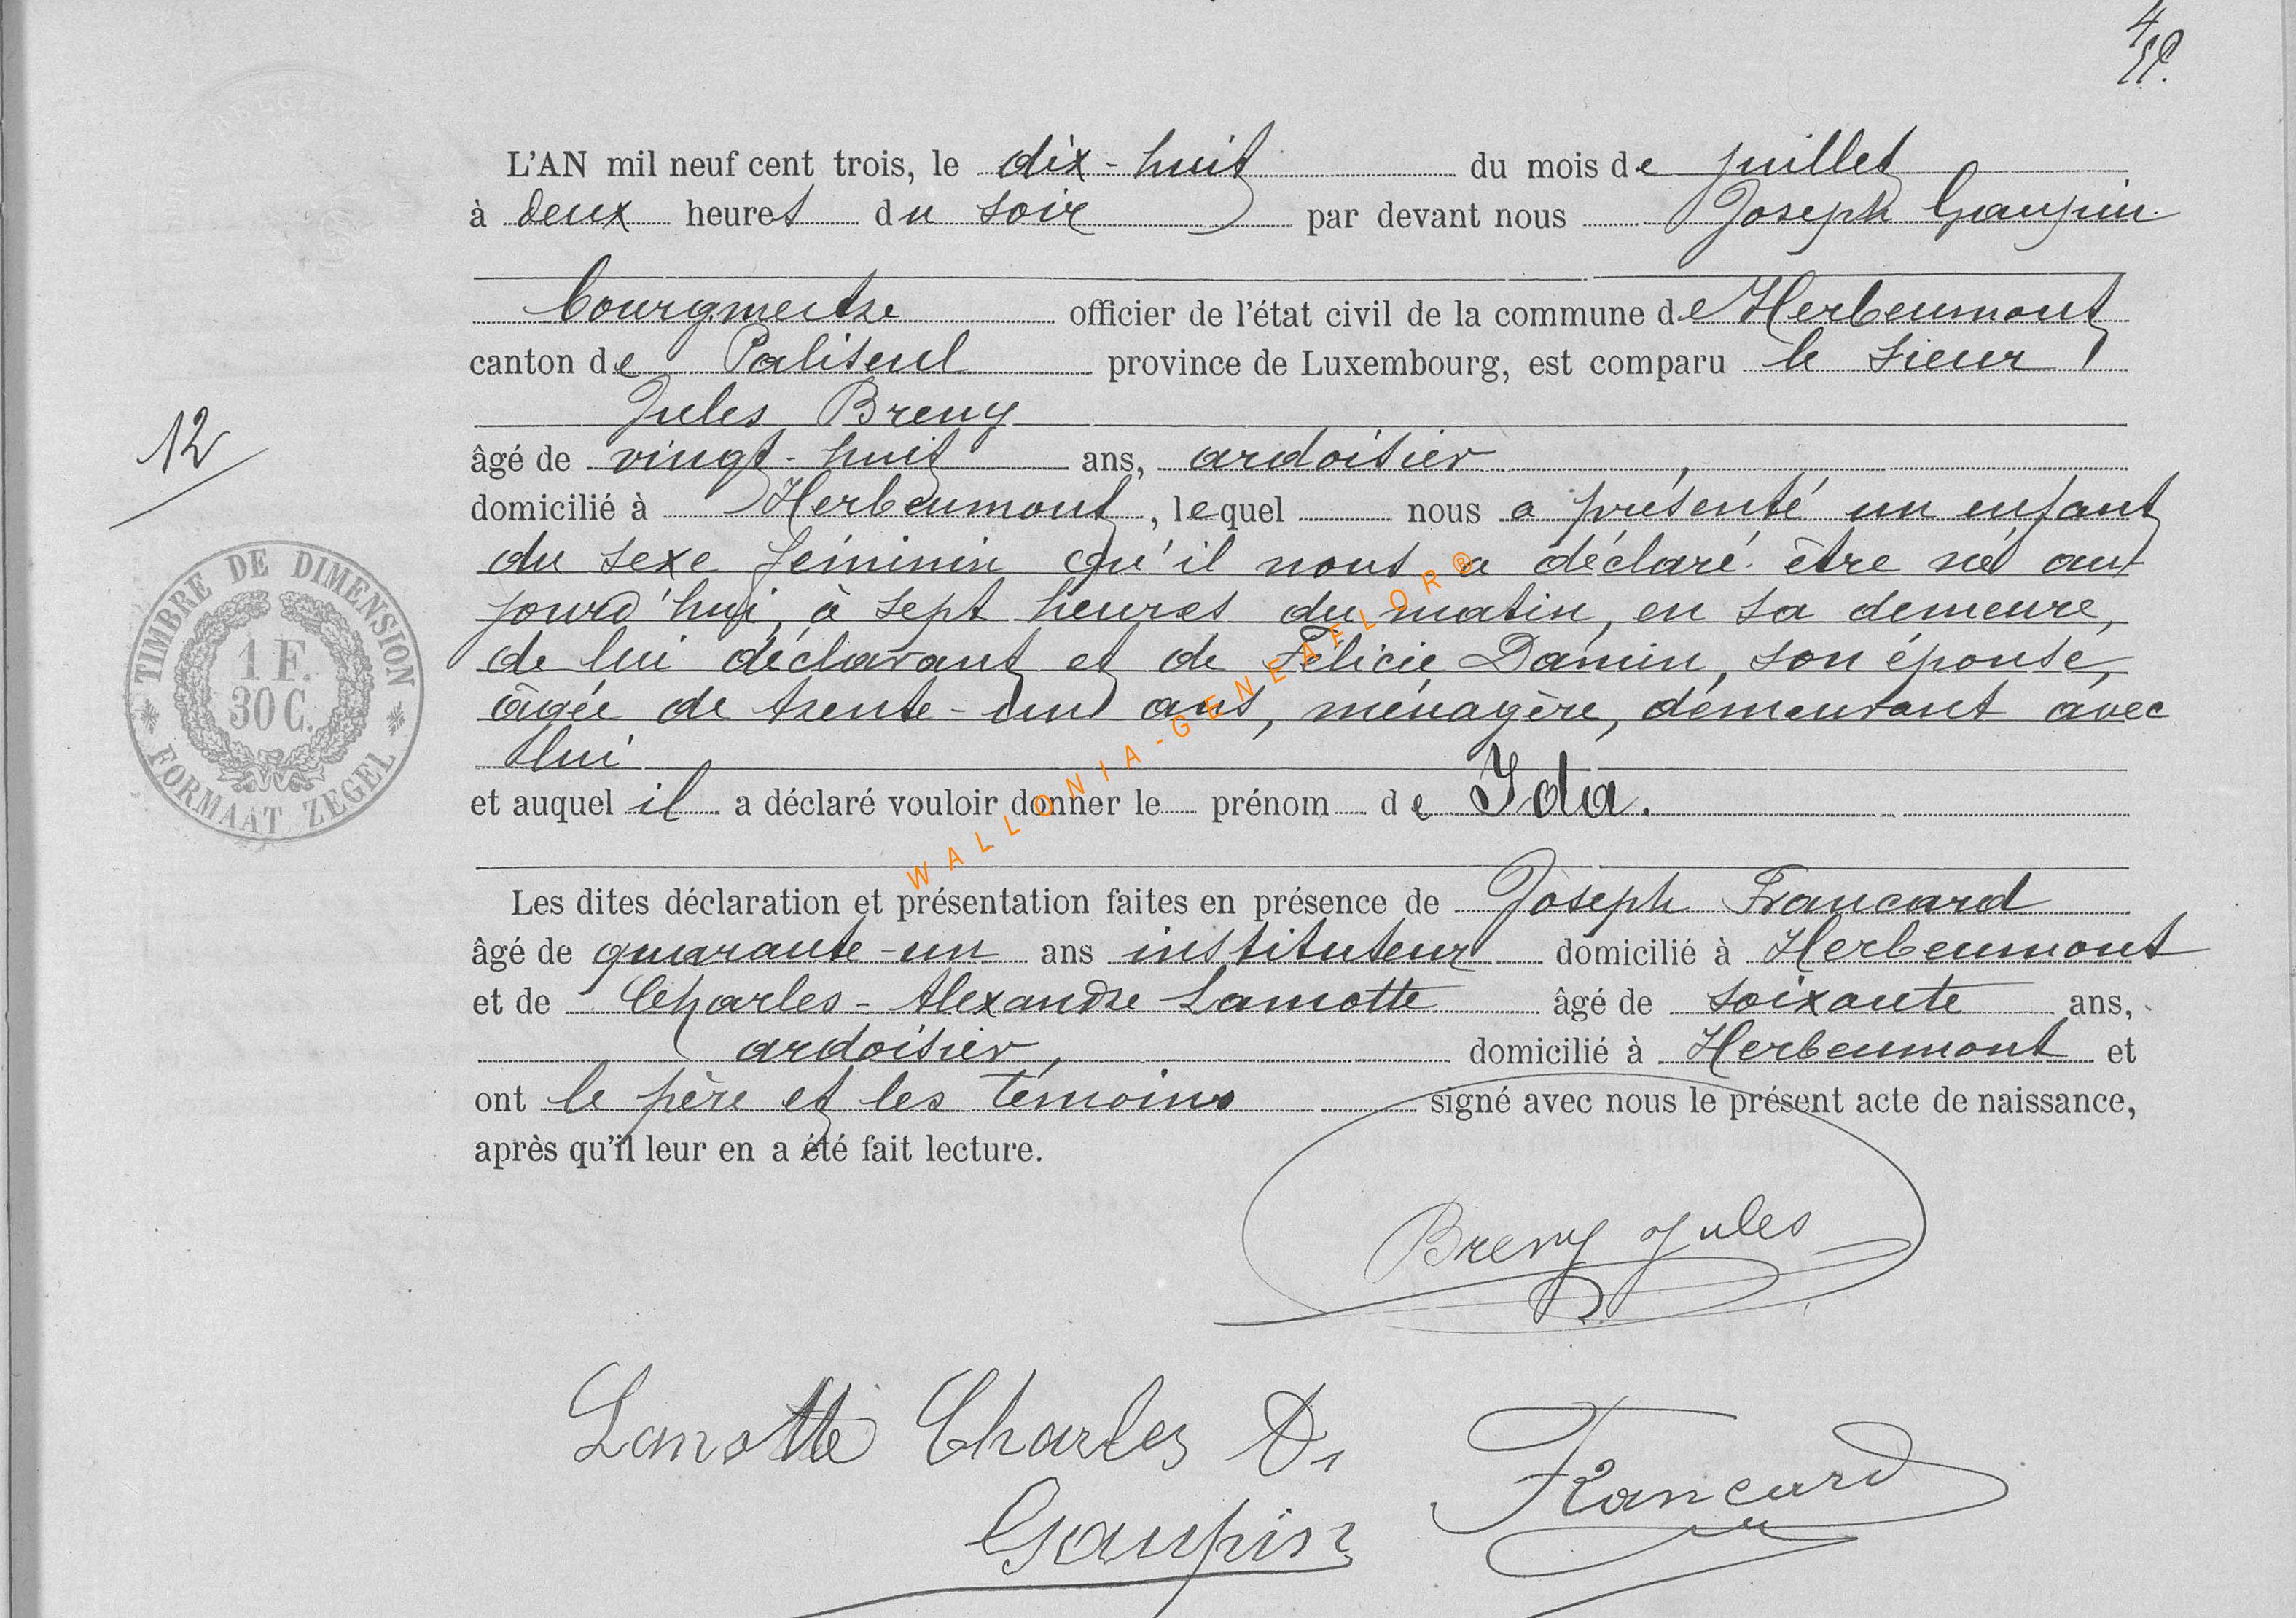 4
L'AN mil neuf cent trois, le dix-huit du mois de juillet
à deux heures du soir par devant nous Joseph Gaupin
bourgmestre officier de l'état civil de la commune de Herbeumont
canton de Paliseul province de Luxembourg, est comparu le sieur
Jules Breny
12
âgé de vingt-huit ans, ardoisier,
domicilié à Herbeumont, lequel nous a présenté un enfant
du sexe féminin qu'il nous a déclaré être né au
jourd'hui, à sept heures du matin, en sa demeure,
de lui déclarant et de Félicie Damin, son épouse,
âgée de trente-un ans, ménagère, demeurant avec
lui
et auquel il a déclaré vouloir donner le prénom de Ida.
TIMBRE DE DIMENSION
1 F.
30 C.
FORMAAT ZEGEL
WALLONIA-GENEAFLOR®
Les dites déclaration et présentation faites en présence de Joseph Francard
âgé de quarante-un ans instituteur domicilié à Herbeumont
et de Charles-Alexandre Lamotte âgé de soixante ans,
ardoisier, domicilié à Herbeumont et
ont le père et les témoins signé avec nous le présent acte de naissance,
après qu'il leur en a été fait lecture.
Breny Jules
Lamotte Charles
Francard
Gaupin